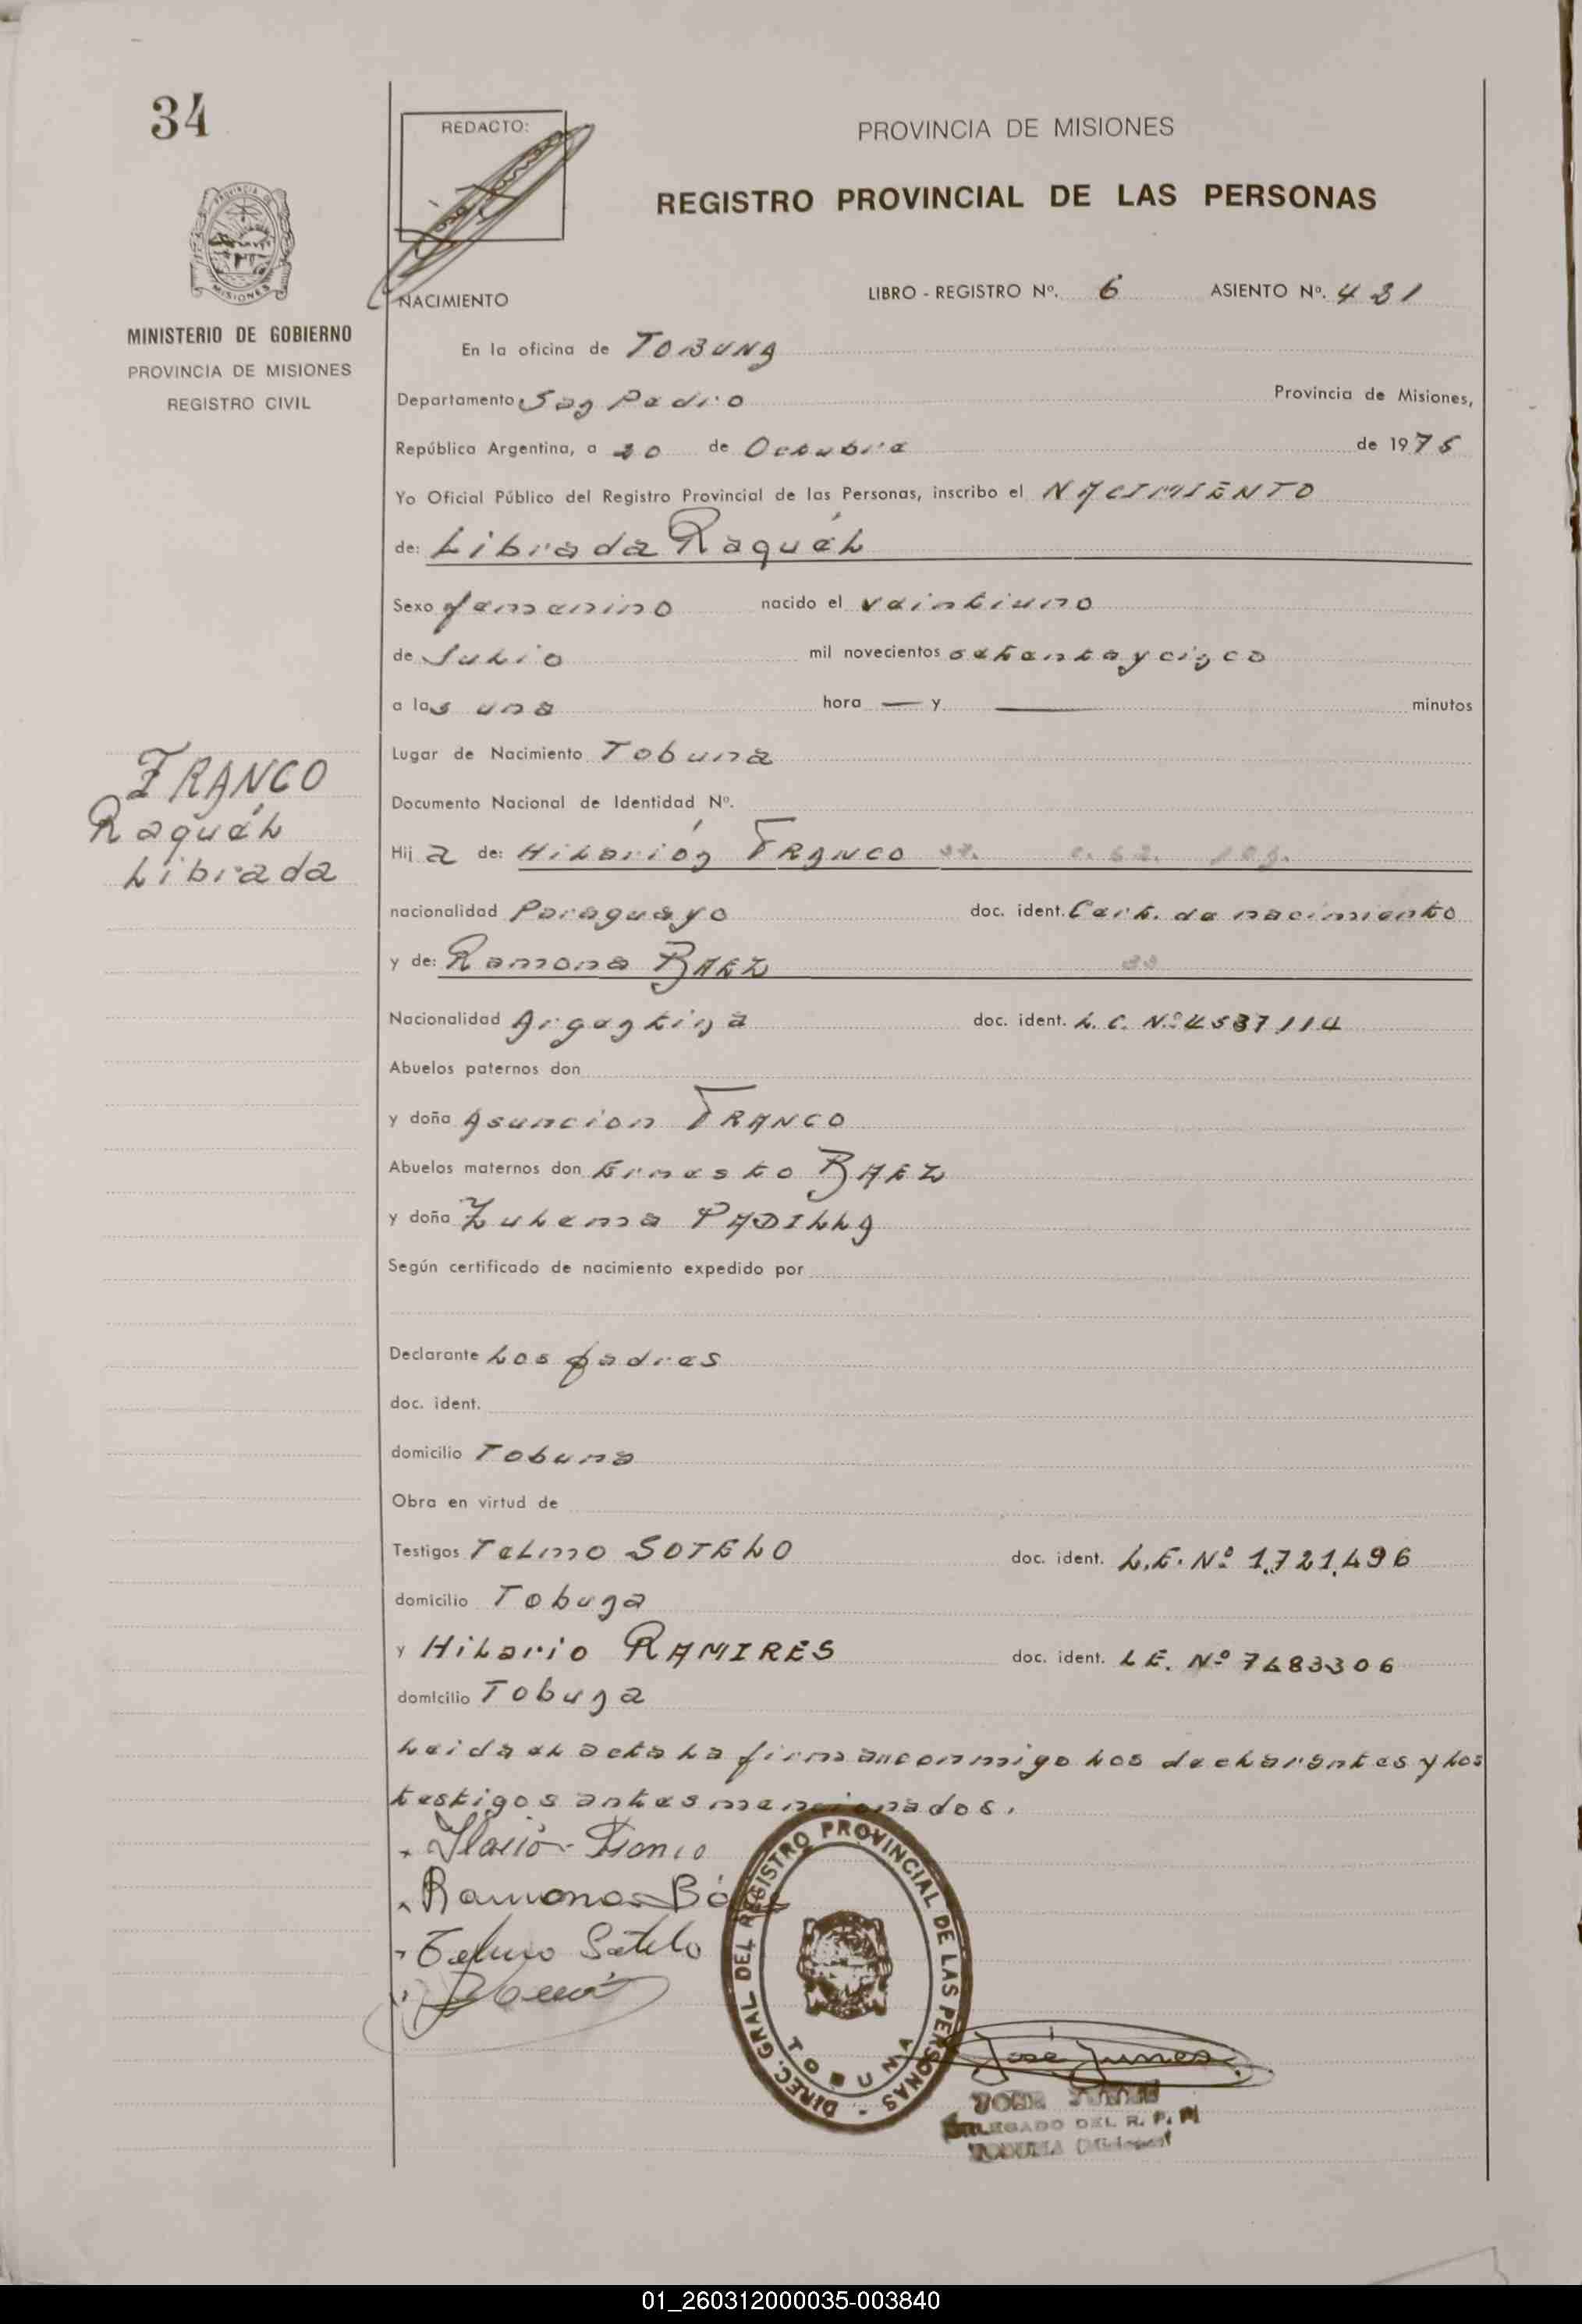 34
REDACTO:
PROVINCIA DE MISIONES
REGISTRO PROVINCIAL DE LAS PERSONAS
PROVINCIA
MISIONES
MINISTERIO DE GOBIERNO
PROVINCIA DE MISIONES
REGISTRO CIVIL
NACIMIENTO
LIBRO - REGISTRO Nº. 6 ASIENTO Nº. 431
En la oficina de TOBUNA
Departamento San Pedro Provincia de Misiones,
República Argentina, a 30 de Octubre de 1975
Yo Oficial Público del Registro Provincial de las Personas, inscribo el NACIMIENTO
de: Librada Raquél
Sexo femenino nacido el veintiuno
de Julio mil novecientos setenta y cinco
a las una hora — y — minutos
Lugar de Nacimiento Tobuna
Documento Nacional de Identidad Nº.
FRANCO
Raquél
Librada
Hija de: Hilarión FRANCO
nacionalidad Paraguayo doc. ident. Cert. de nacimiento
y de: Ramona BAEZ
Nacionalidad Argentina doc. ident. L. C. Nº 4537114
Abuelos paternos don
y doña Asuncion FRANCO
Abuelos maternos don Ernesto BAEZ
y doña Zulema PADILLA
Según certificado de nacimiento expedido por
Declarante Los padres
doc. ident.
domicilio Tobuna
Obra en virtud de
Testigos Telmo SOTELO doc. ident. L.E. Nº 1.721.496
domicilio Tobuna
y Hilario RAMIRES doc. ident. L E. Nº 7483306
domicilio Tobuna
Leida el acta la firman conmigo los declarantes y los
testigos antes mencionados.
Ilario Franco
Ramona Báez
Telmo Sotelo
DIREC. GRAL DEL REGISTRO PROVINCIAL DE LAS PERSONAS -
TOBUNA
José Junes
JOSE JUNES
DELEGADO DEL R. P. P.
TOBUNA (Misiones)
01_260312000035-003840